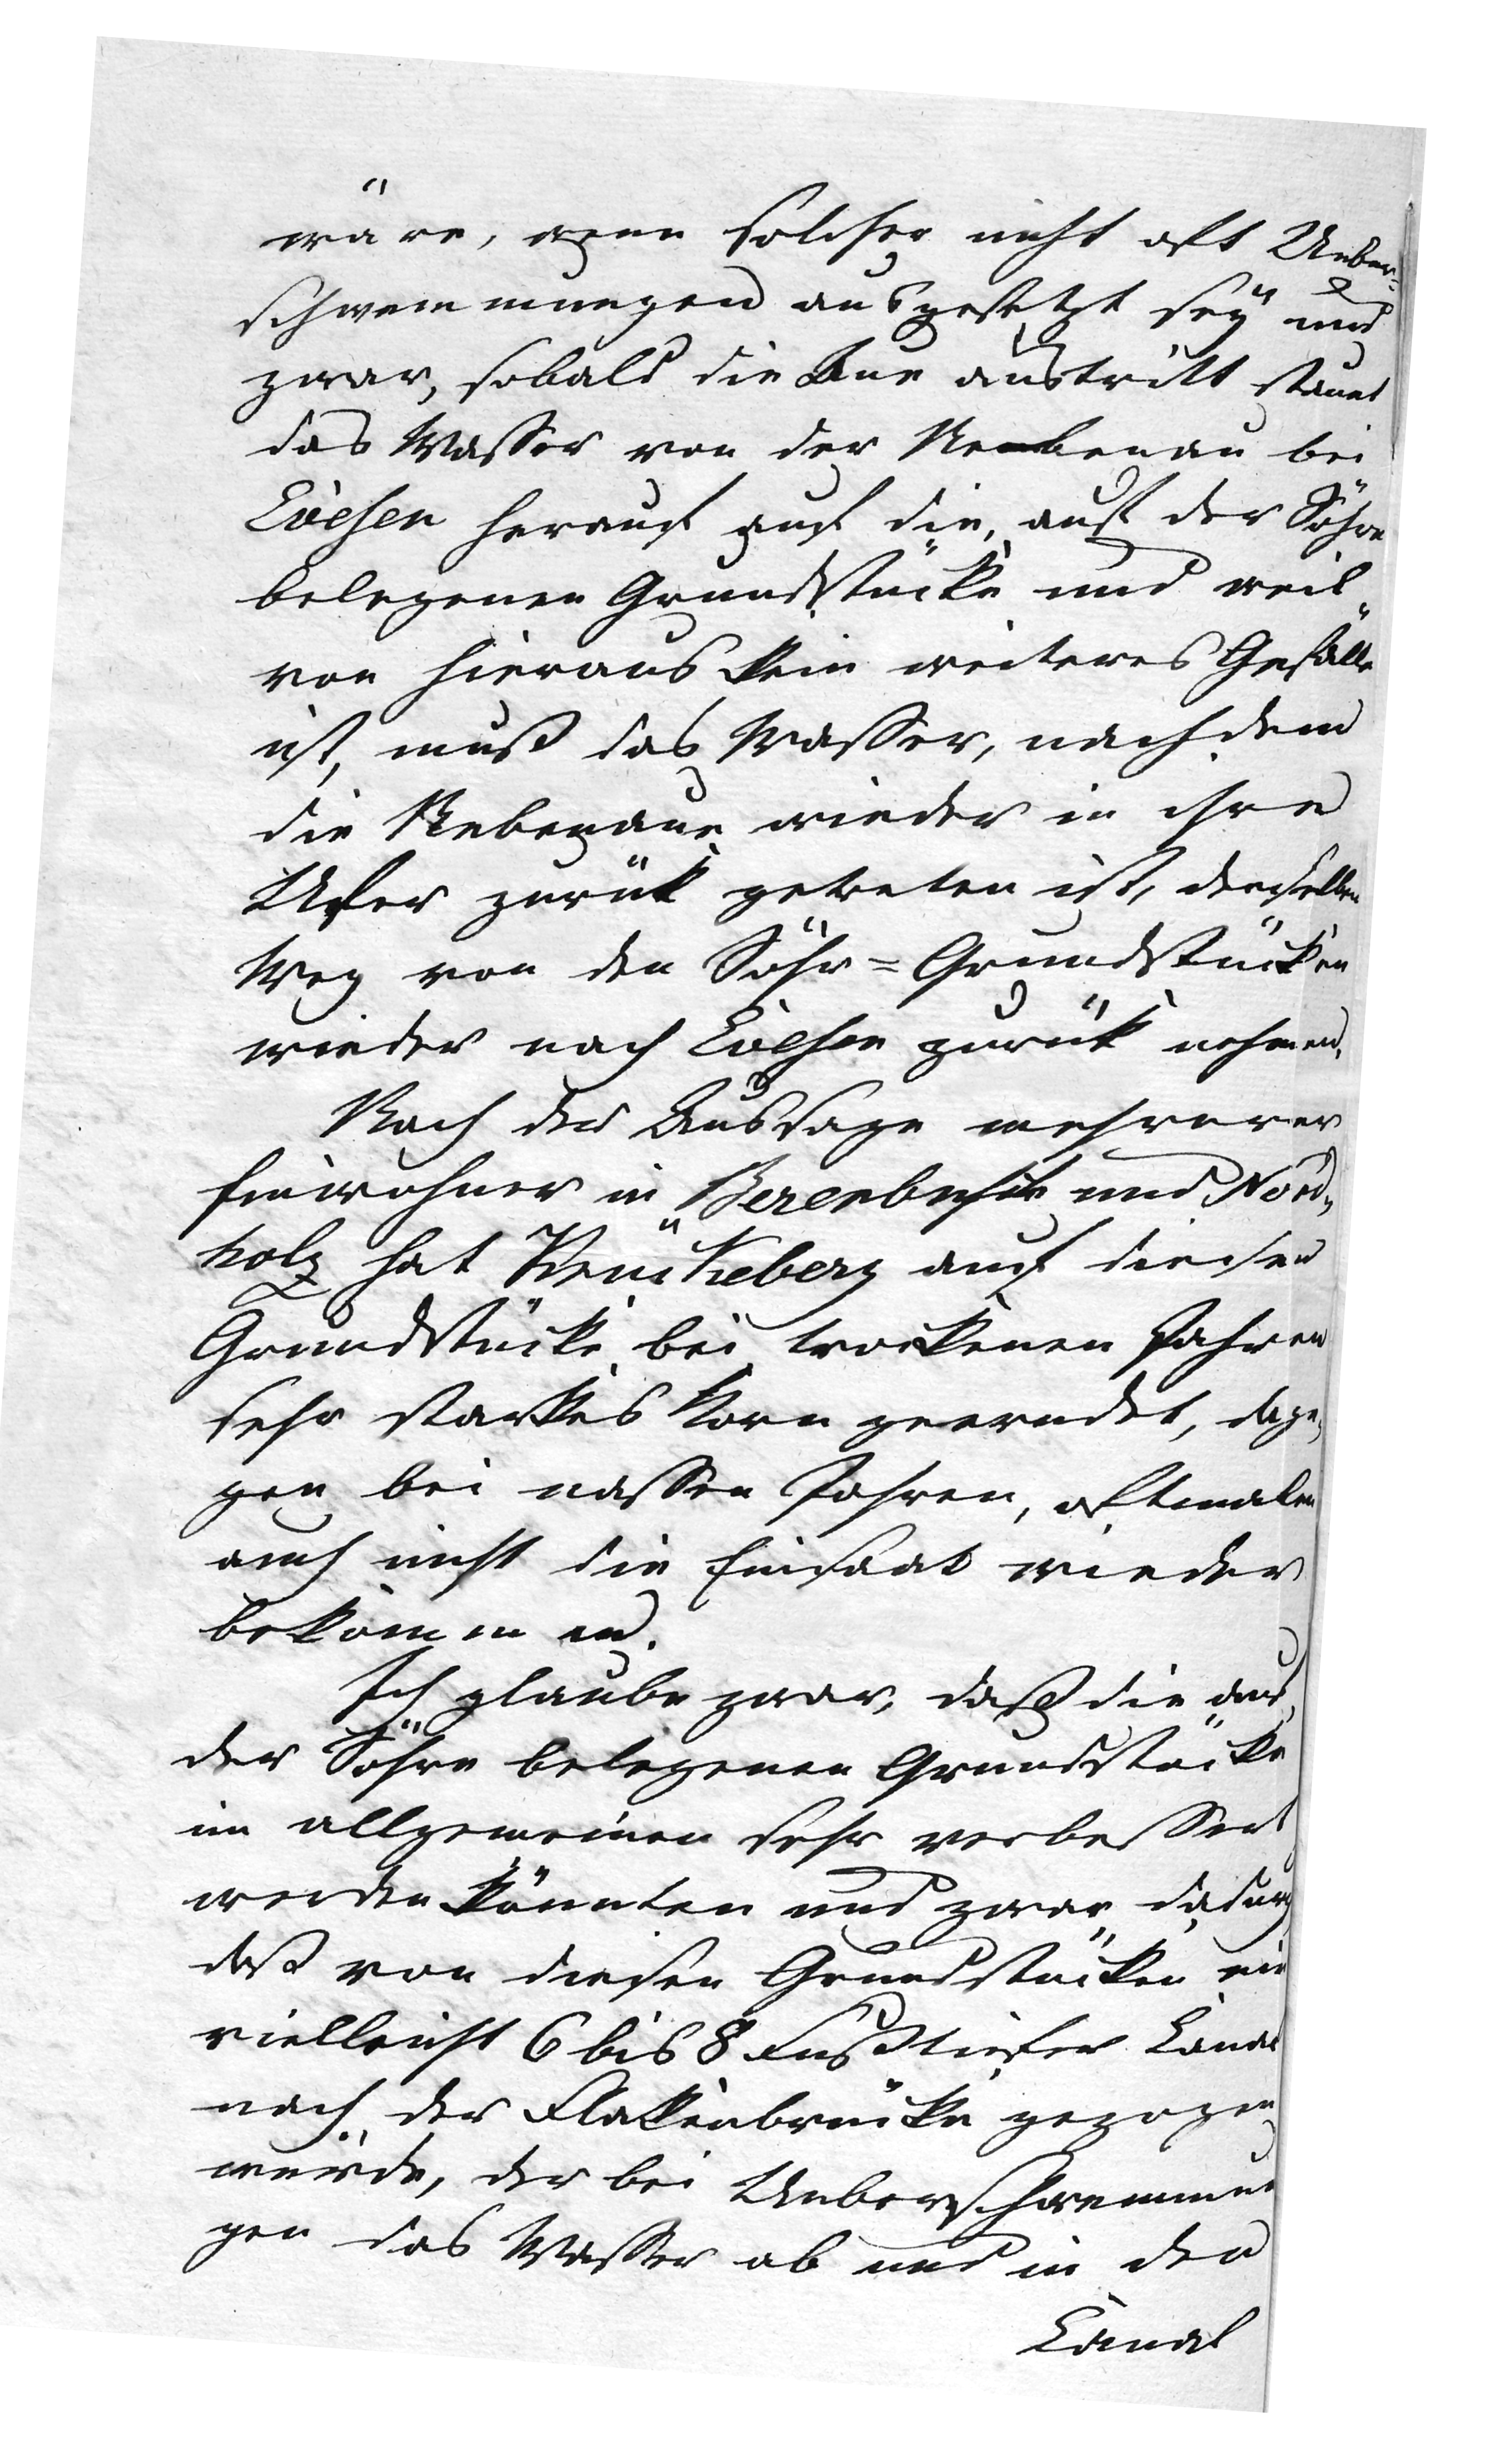 wäre, wenn solcher nicht oft Ueber-
schwemmungen ausgesetzt sey und
zwar, sobald die Aue austritt staut
das Wasser von der Nebenau bei
Evesen herauf auf die, auf der Söhre
belegenen Grundstücke und weil
von hieraus kein weiteres Gefälle
ist, muß das Wasser, nachdem
die Nebenaue wieder in ihre
Ufer zurück getreten ist, denselben
Weg von den Söhr=Grundstücken
wieder nach Evesen zurück nehmen.
Nach der Aussage mehrerer
Einwohner in Berenbusch und Nord-
holz hat Krückeberg auf diesen
Grundstücke bei trockenen Jahren
sehr starkes Korn geerndet, dage-
gen bei nassen Jahren, oftmalen
auch nicht die Einsaat wieder
bekommen.
Ich glaube zwar, daß die auf
der Söhre belegenen Grundstücke
im allgemeinen sehr verbessert
werden könnten und zwar dadurch
daß von diesen Grundstücken ein
vielleicht 6 bis 8 Fuß tiefer Canal
nach der Flakenbrücke gezogen
würde, der bei Ueberschwemmun
gen das Wasser ab und in den
Canal